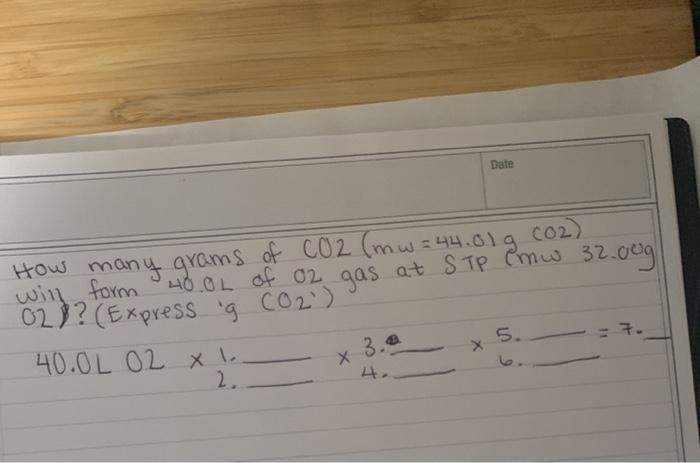 Date
How many grams of CO2 (mw=44.01g CO2)
will form 40.0L of O2 gas at STP (mw 32.00g
O2)? (Express 'g CO2')
40.0L O2 x 1. ____ x 3. ____ x 5. ____ = 7. __
2. ____ 4. ____ 6. ____